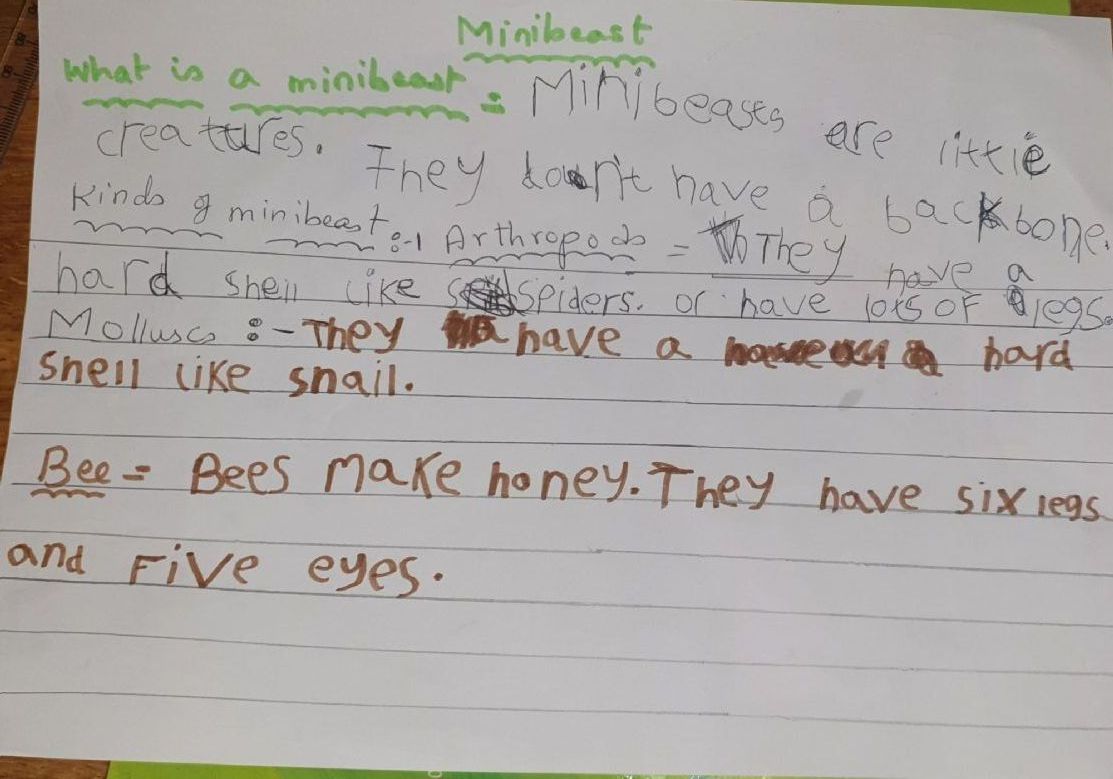 Minibeast
What is a minibeast = Minibeasts are little
creatures. They don't have a backbone.
Kinds of minibeast :-1 Arthropods = They have a
hard shell like spiders. or have lots of legs.
Molluscs :- They have a hard
shell like snail.
Bee = Bees make honey. They have six legs
and Five eyes.